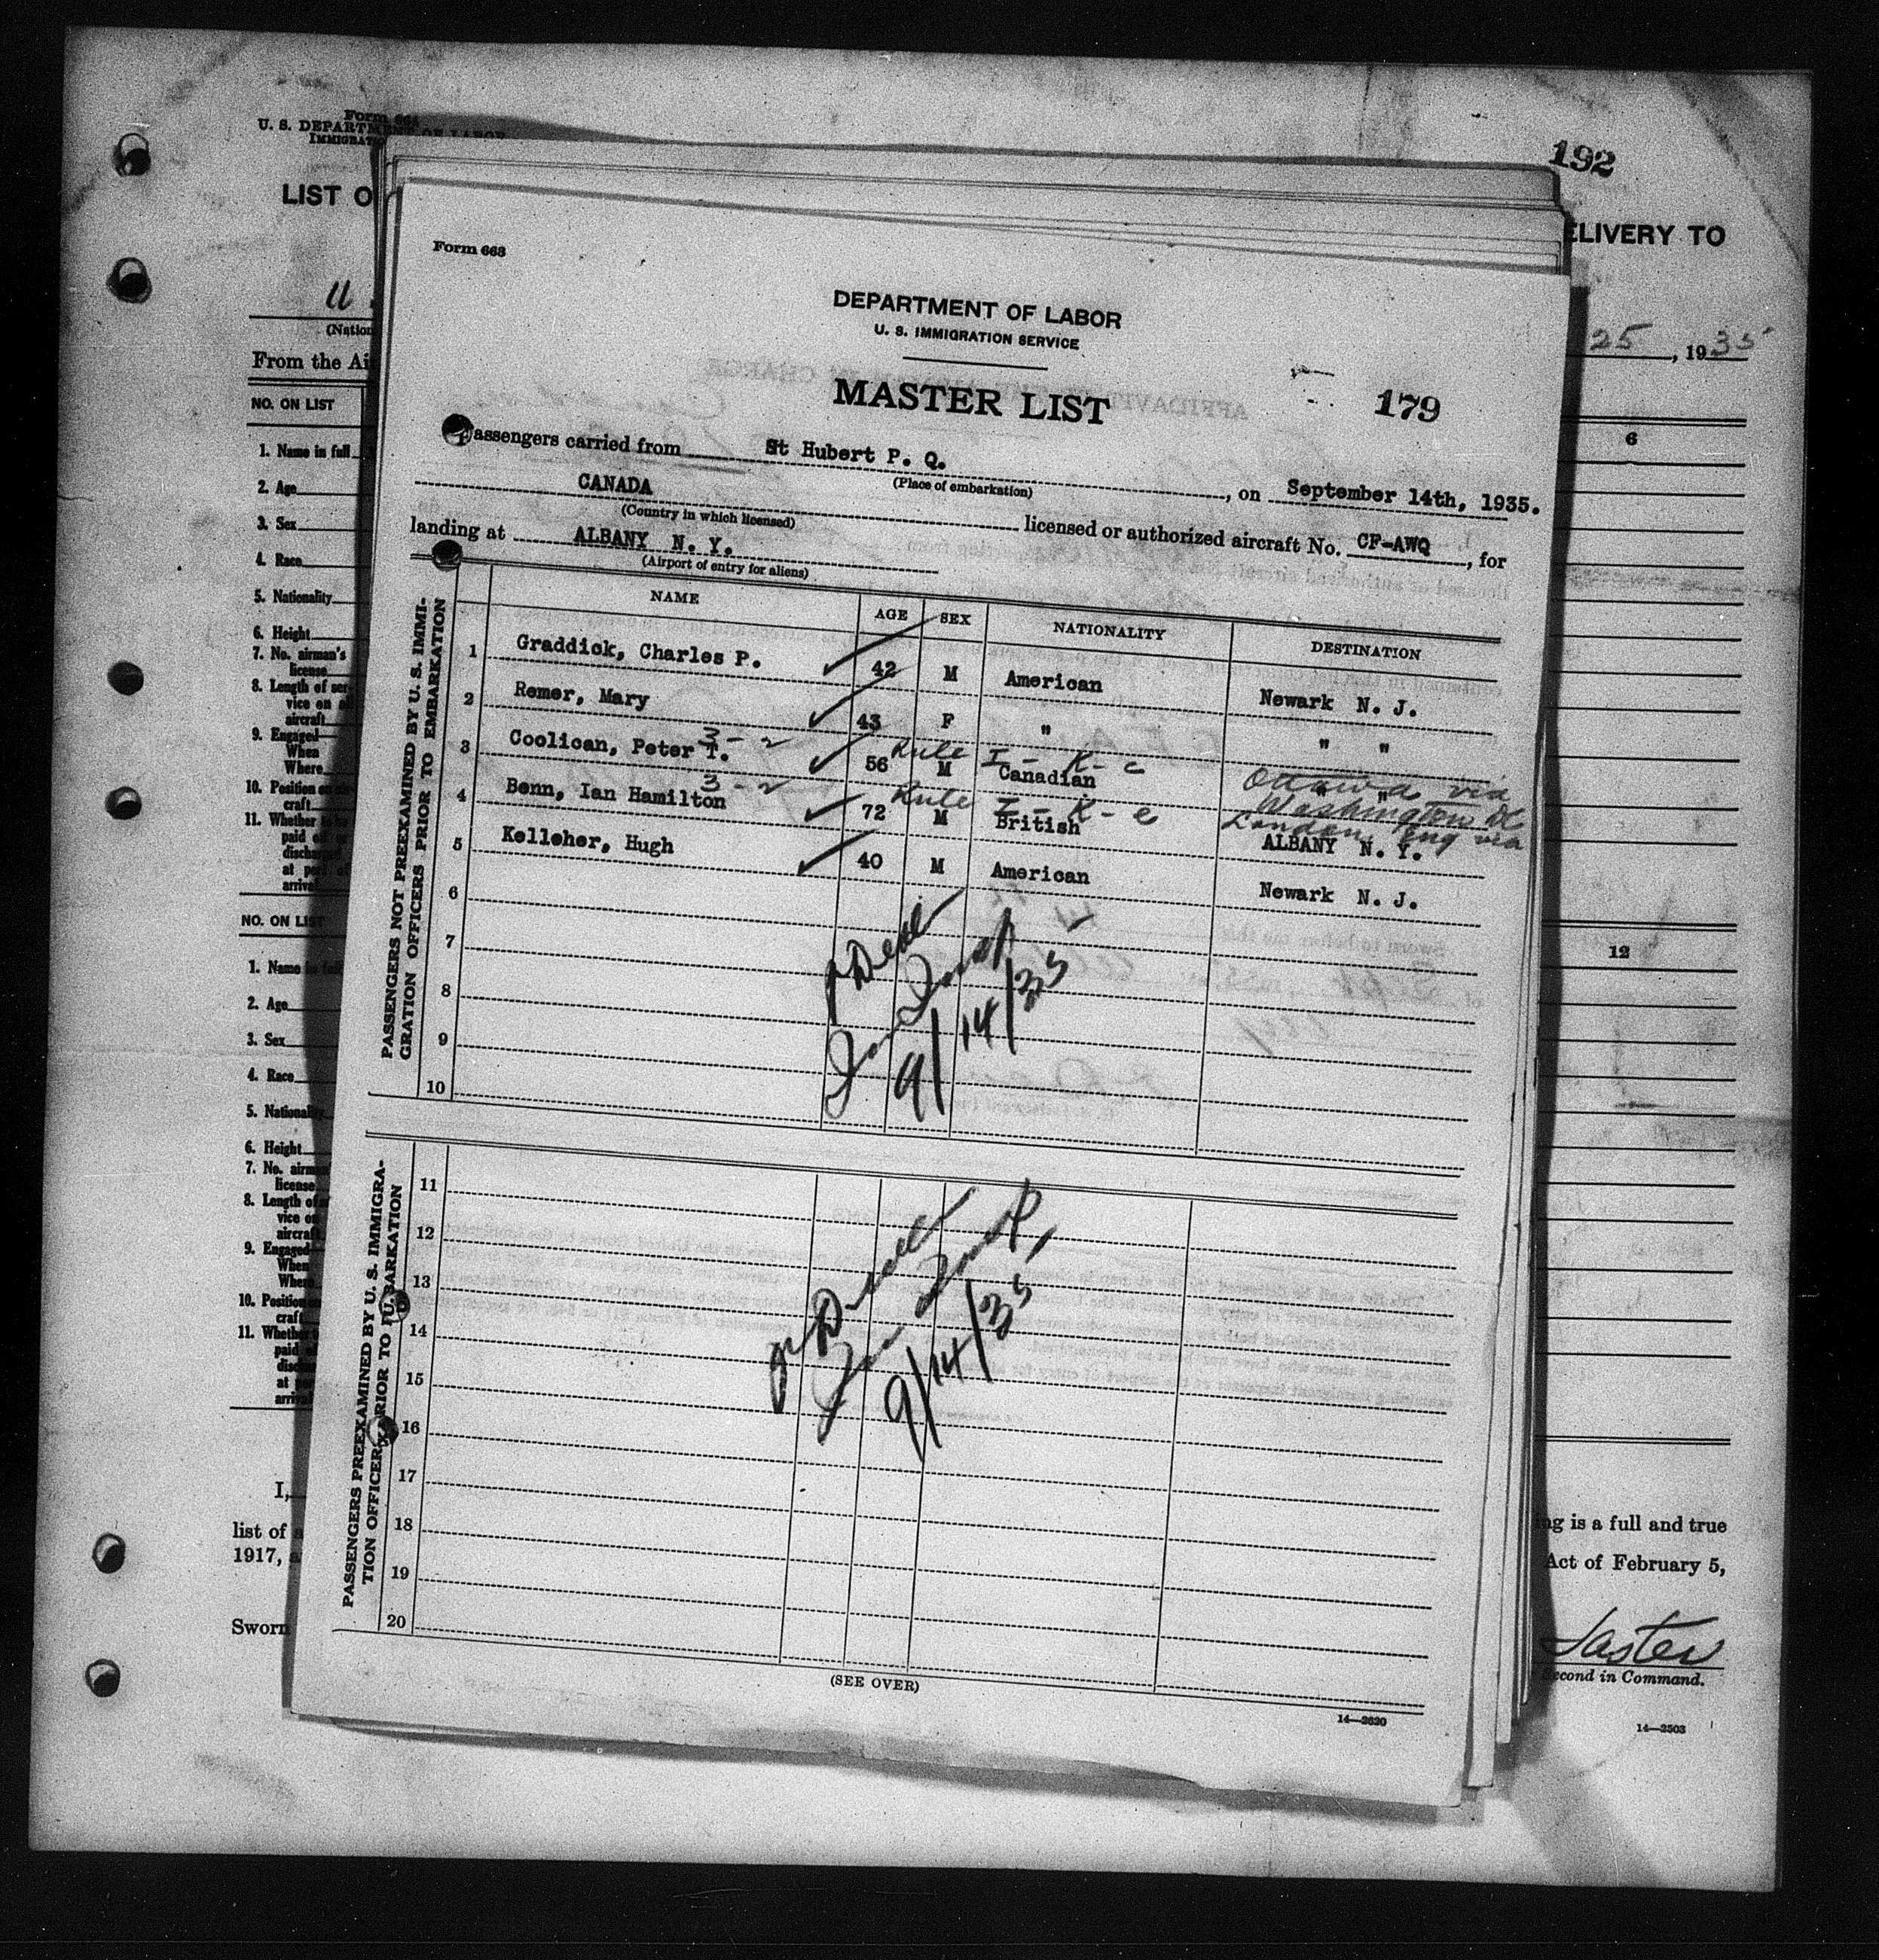 Form 664
U. S. DEPARTMENT OF LABOR
192
LIST O
ELIVERY TO
(Nation
25, 1935
From the Ai
NO. ON LIST
6
1. Name in full
2. Age
3. Sex
4. Race
5. Nationality
6. Height
7. No. airman's
license
8. Length of ser-
vice on
aircraft
9. Engaged
When
Where
10. Position on
craft
11. Whether
paid
at
arrival
NO. ON LIST
12
1. Name
2. Age
3. Sex
4. Race
5. Nationality
6. Height
7. No.
license
8. Length of
vice on
aircraft
9. Engaged
When
Where
10. Position
craft
11. Whether
paid
at
I,
list of
1917,
Sworn
ng is a full and true
Act of February 5,
Second in Command.
14—2503
Form 663
DEPARTMENT OF LABOR
U. S. IMMIGRATION SERVICE
MASTER LIST
179
Passengers carried from St Hubert P. Q.
(Place of embarkation)
, on September 14th, 1935.
CANADA
(Country in which licensed)
licensed or authorized aircraft No. CF-AWQ, for
landing at ALBANY N. Y.
(Airport of entry for aliens)
NAME AGE SEX NATIONALITY DESTINATION
PASSENGERS NOT PREEXAMINED BY U. S. IMMI-
GRATION OFFICERS PRIOR TO EMBARKATION
1 Graddick, Charles P. 42 M American Newark N. J.
2 Remer, Mary 43 F " " "
3-2 Rule I-K-c Ottawa via
3 Coolican, Peter T. 56 M Canadian " "
Washington DC
3-2 Rule I-K-c London, Eng via
4 Benn, Ian Hamilton 72 M British ALBANY N. Y.
5 Kelleher, Hugh 40 M American Newark N. J.
6
7
8
9
10
9/14/35
PASSENGERS PREEXAMINED BY U. S. IMMIGRA-
TION OFFICERS PRIOR TO EMBARKATION
11
12
13
14
15
16
17
18
19
20
9/14/35
(SEE OVER)
14—2620